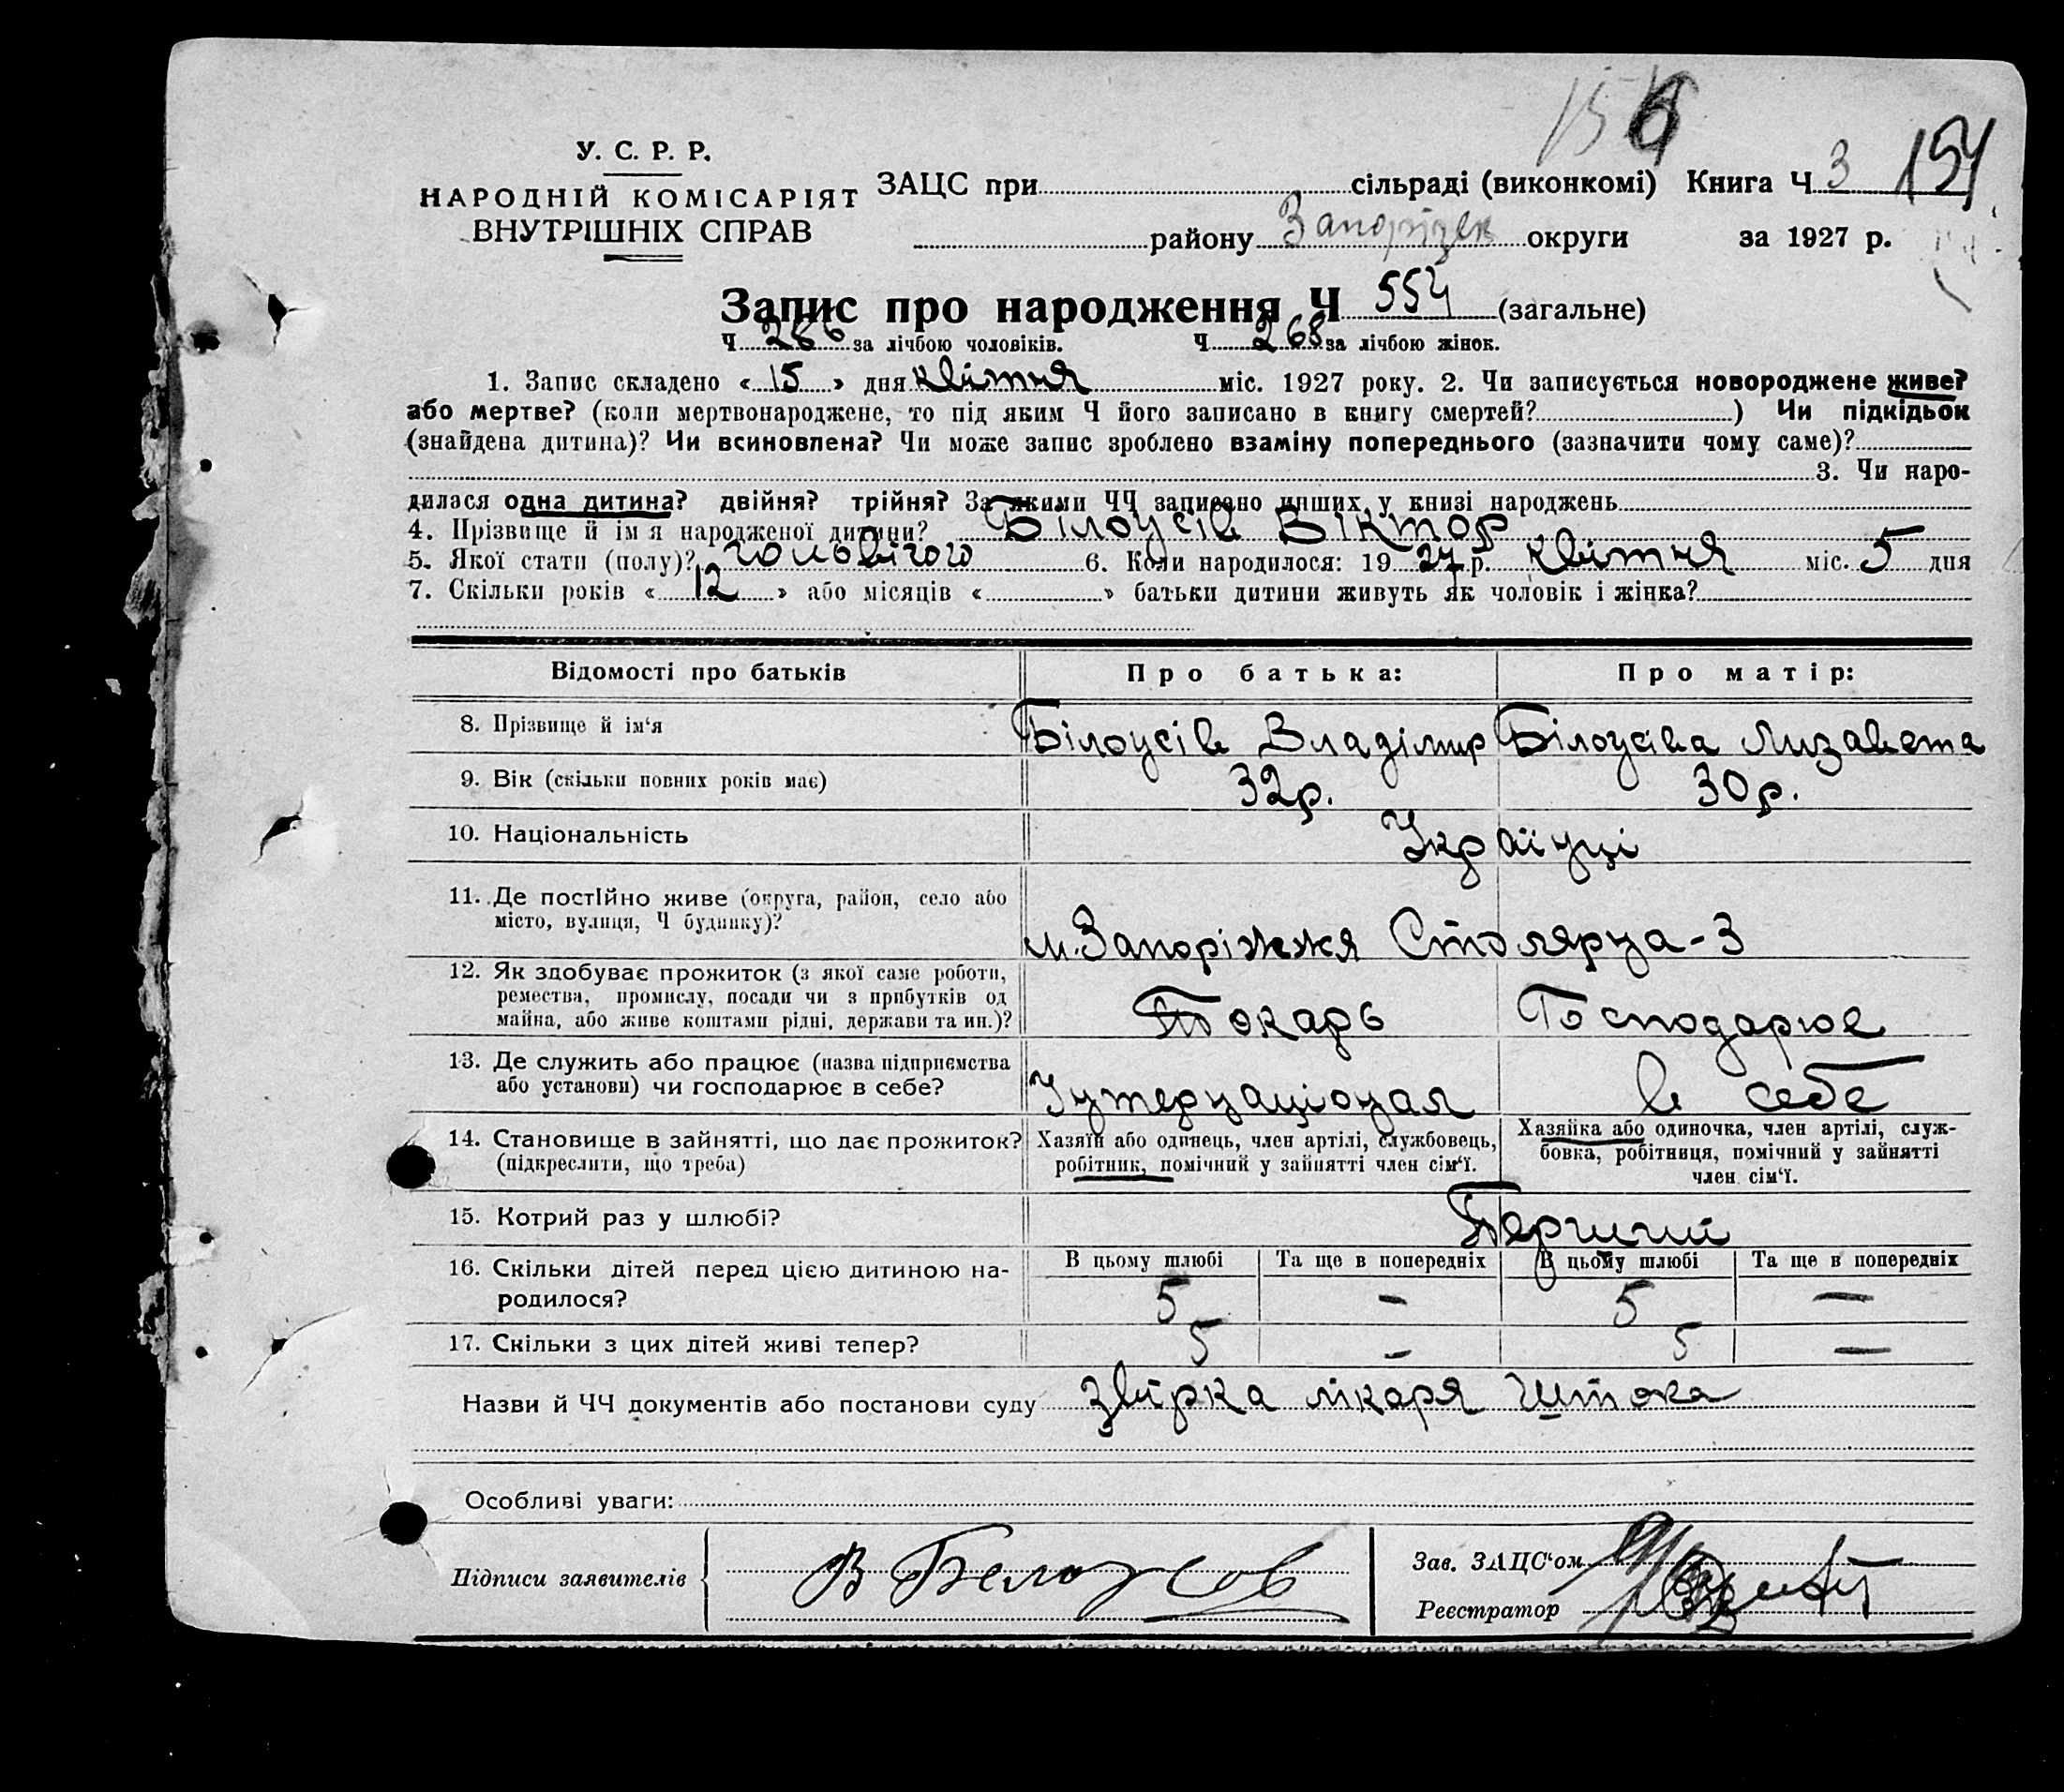 156 154
У. С. Р. Р.
НАРОДНІЙ КОМІСАРІЯТ
ВНУТРІШНІХ СПРАВ
ЗАЦС при сільраді (виконкомі) Книга Ч 3
району Запорізьк округи за 1927 р.
Запис про народження Ч 554 (загальне)
Ч 286 за лічбою чоловіків. Ч 268 за лічбою жінок.
1. Запис складено « 15 » дня квітня міс. 1927 року. 2. Чи записується новороджене живе?
або мертве? (коли мертвонароджене, то під яким Ч його записано в книгу смертей? ) Чи підкідьок
(знайдена дитина)? Чи всиновлена? Чи може запис зроблено взаміну попереднього (зазначити чому саме)?
3. Чи наро-
дилася одна дитина? двійня? трійня? За якими ЧЧ записано инших у книзі народжень
4. Прізвище й ім'я народженої дитини? Білоусів Віктор
5. Якої стати (полу)? чоловічого 6. Коли народилося: 19 27 р. квітня міс. 5 дня
7. Скільки років « 12 » або місяців « » батьки дитини живуть як чоловік і жінка?
Відомості про батьків Про батька: Про матір:
8. Прізвище й ім'я Білоусів Владімир Білоусіва Лизавета
9. Вік (скільки повних років має) 32р. 30р.
10. Національність Українці
11. Де постійно живе (округа, район, село або
місто, вулиця, Ч будинку)? м. Запоріжжя Столярна-3
12. Як здобуває прожиток (з якої саме роботи,
ремества, промислу, посади чи з прибутків од
майна, або живе коштами рідні, держави та ин.)? Токарь Господарює
13. Де служить або працює (назва підприємства
або установи) чи господарює в себе? Інтернаціонал в себе
14. Становище в зайнятті, що дає прожиток?
(підкреслити, що треба)
Хазяїн або одинець, член артілі, службовець,
робітник, помічний у зайнятті член сім'ї.
Хазяйка або одиночка, член артілі, служ-
бовка, робітниця, помічний у зайнятті
член сім'ї.
15. Котрий раз у шлюбі? Перший
16. Скільки дітей перед цією дитиною на-
родилося?
В цьому шлюбі Та ще в попередніх В цьому шлюбі Та ще в попередніх
5 - 5 -
17. Скільки з цих дітей живі тепер? 5 - 5 -
Назви й ЧЧ документів або постанови суду звірка лікаря Штока
Особливі уваги:
Підписи заявителів В Белоусов
Зав. ЗАЦС'ом
Реєстратор